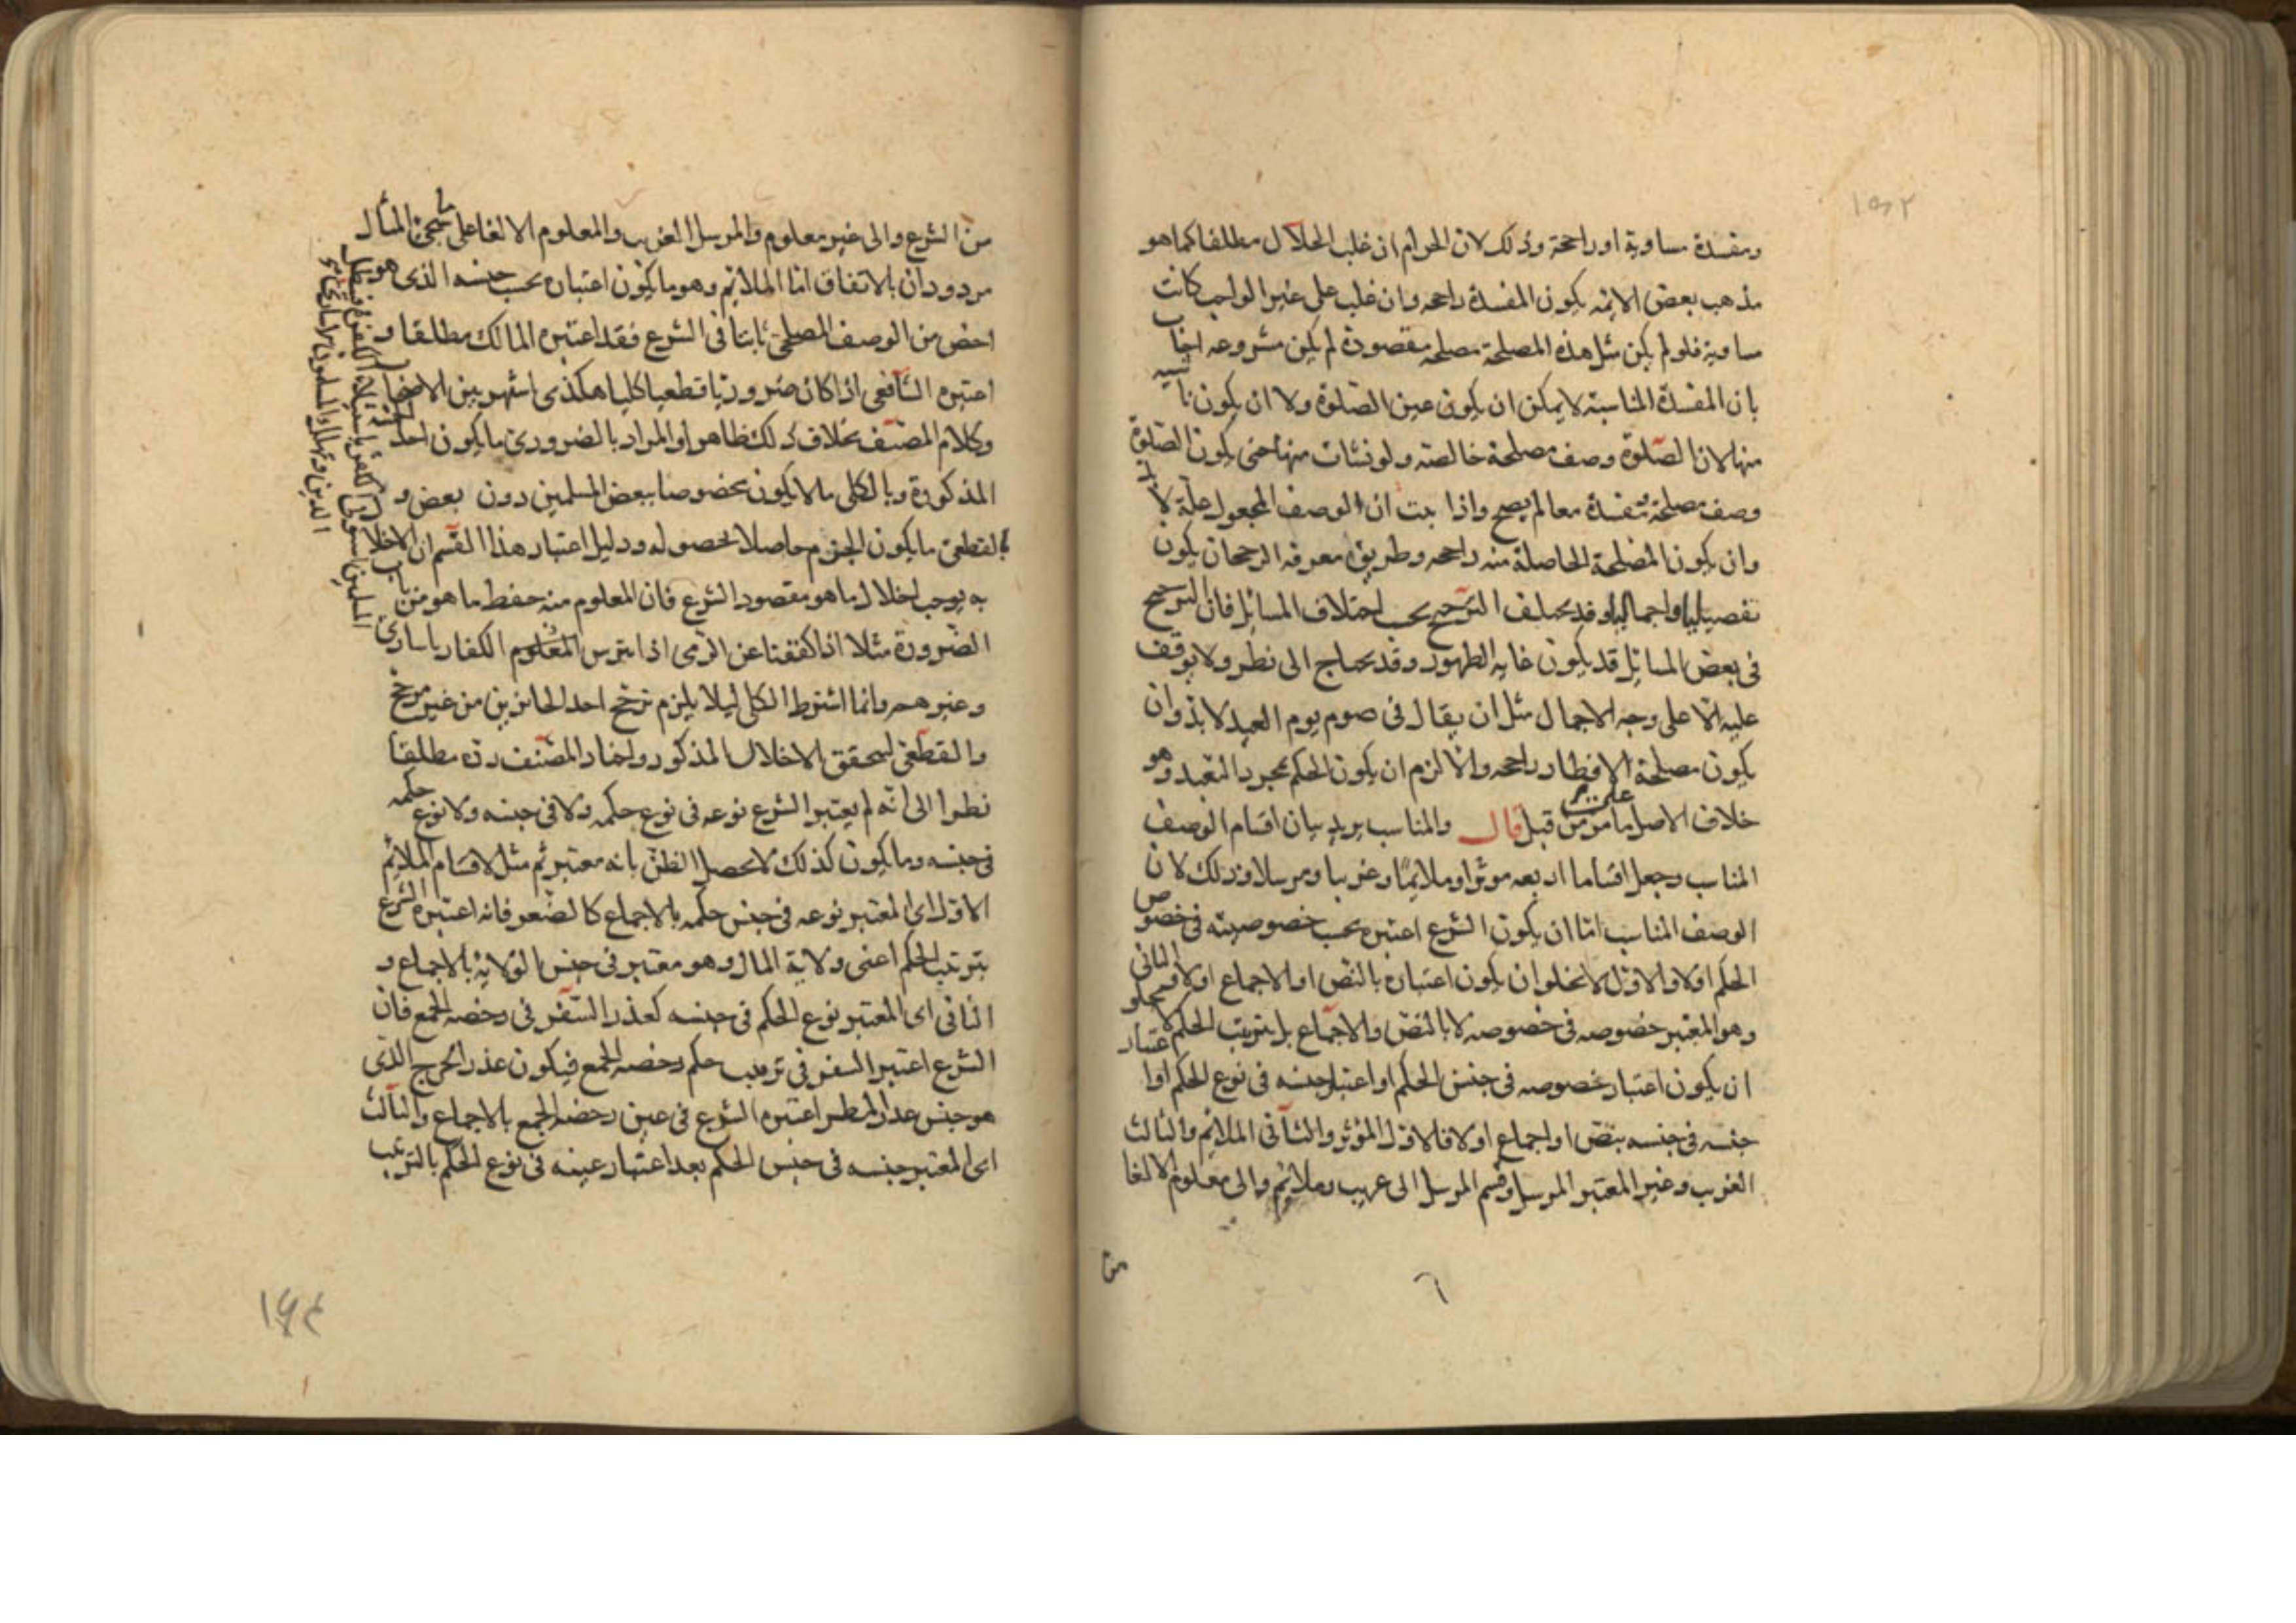 ومفسدة مساوية او راجحة وذلك لان الحرام ان غلب الحلال مطلقا كما هو
مذهب بعض الائمه يكون المفسدة راجحه وان غلب على غير الواجب كانت
مساوية فلو لم يكن مثل هذه المصلحة مصلحه مقصودة لم يكن مشروعه اجاب
بان المفسدة الناسبة لا يمكن ان يكون عين الصلوة ولا ان يكون ناشيه
منها لان الصلوة وصف مصلحة خالصته ولو نشات منها حتى يكون الصلوة
وصف مصلحة مفسدة معا لم يصح واذا ثبت ان الوصف المجعول علة لا بد
وان يكون المصلحة الحاصلة منه راجحه وطريق معرفه الرجحان يكون
تفصيليا واجماليا وقد يختلف الترجيح بحسب اختلاف المسائل فان الترجيح
فى بعض المسائل قد يكون غايه الظهور وقد يحتاج الى نظر ولا يوقف
عليه الا على وجه الاجمال مثل ان يقال فى صوم يوم العيد لا بد وان
يكون مصلحة الافطار راجحه والا لزم ان يكون الحكم بمجرد التعبد وهو
خلاف الاصل على ما مر من قبل قال والمناسب يريد بيان اقسام الوصف
المناسب وجعل اقساما اربعه موثرا وملايما وغريبا ومرسلا وذلك لان
الوصف المناسب اما ان يكون الشرع اعتبره بحسب خصوصيته فى خصوص
الحكم اولا والاول لا يخلو ان يكون اعتباره بالنص او الاجماع اولا والثانى
وهو المعتبر خصوصه فى خصوصه لا بالنص والاجماع بل بترتيب الحكم لا يخلو
ان يكون اعتبار خصوصه فى جنس الحكم او اعتبار جنسه فى نوع الحكم او اعتبار
جنسه فى جنسه بنص او اجماع اولا فالاول المؤثر والثانى الملائم والثالث
الغريب وغير المعتبر المرسل وقسم المرسل الى غريب وملائم والى معلوم الالغا
من
من الشرع والى غير معلوم والمرسل الغريب والمعلوم الالغا على المثال
مردودان بالاتفاق اما الملائم وهو ما يكون اعتباره بحسب جنسه الذى هو
اخص من الوصف المصلحى ثابتا فى الشرع فقد اعتبره المالك مطلقا و
اعتبره الشافعى اذا كان ضروريا قطعيا كليا هكذى اشتهر بين الاصحاب
وكلام المصنف بخلاف ذلك ظاهرا والمراد بالضرورى ما يكون احد الخمسة
المذكورة وبالكلى ما لا يكون مخصوصا ببعض المسلمين دون بعض و
بالقطعى ما يكون الجزم حاصلا بحصوله ودليل اعتبار هذا القسم ان الاخلال
به يوجب اخلال ما هو مقصود الشرع فان المعلوم منه حفظ ما هو من باب
الضرورة مثلا اذا كففنا عن الرمى اذا تترس الكفار باسارى
المسلمين
وغيرهم وانما اشترط الكلى ليلا يلزم ترجح احد الجائزين من غير مرجح
والقطعى ليتحقق الاخلال المذكور واختار المصنف رده مطلقا
نظرا الى انه لم يعتبر الشرع نوعه فى نوع حكمه ولا فى جنسه ولا نوع حكمه
فى جنسه وما يكون كذلك لا يحصل الظن بانه معتبر ثم مثل لاقسام الملائم
الاول اى المعتبر نوعه فى جنس حكمه بالاجماع كالصغر فانه اعتبره الشرع
بترتيب الحكم اعنى ولاية المال وهو معتبر فى جنس الولاية بالاجماع و
الثانى اى المعتبر نوع الحكم فى جنسه كعذر السفر فى رخصه الجمع فان
الشرع اعتبر السفر فى ترتيب حكم رخصه الجمع فيكون عذر الحرج الذى
هو جنس عذر المطر اعتبره الشرع فى عين رخصه الجمع بالاجماع والثالث
اى المعتبر جنسه فى جنس الحكم بعد اعتبار عينه فى نوع الحكم بالترتيب